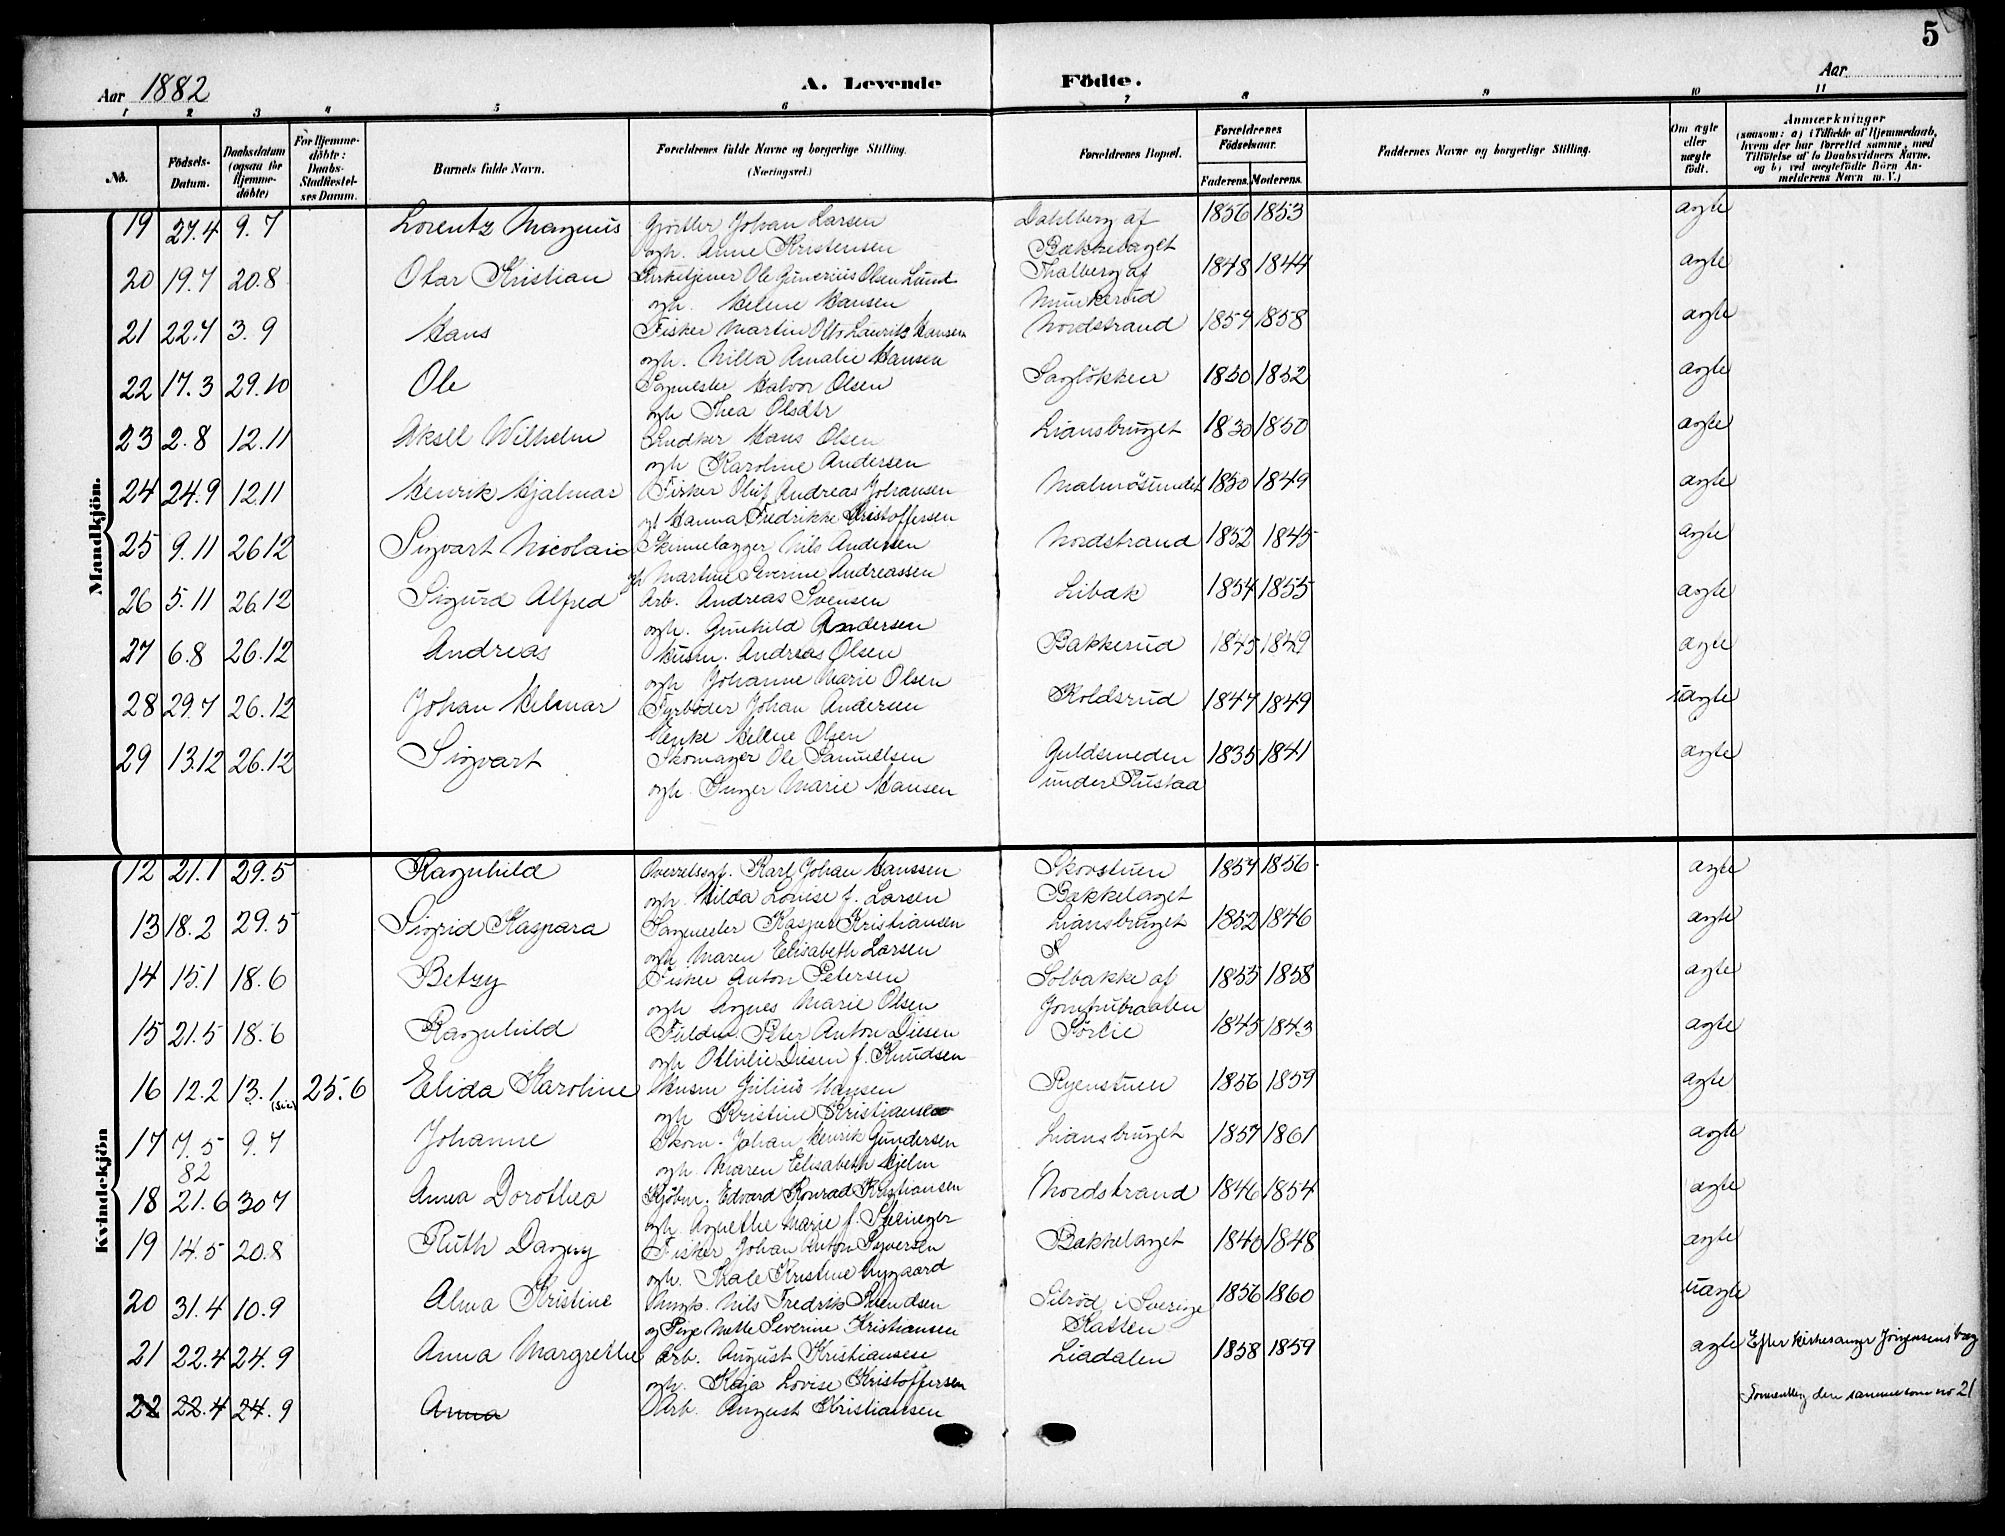 5
Aar 1882
A. Levende Födte.
Aar
1 2 3 4 5 6 7 8 9 10 11
No.
Födsels-Datum.
Daabsdatum (ogsaa for Hjemmedöbte)
For Hjemmedöbte: Daabs-Stadfestelses Datum.
Barnets fulde Navn.
Forældrenes fulde Navne og borgerlige Stilling. (Næringsvei.)
Forældrenes Bopæl.
Forældrenes Födselsaar.
Faderens. Moderens.
Faddernes Navne og borgerlige Stilling.
Om ægte eller uægte født.
Anmærkninger
(saasom: a) i Tilfælde af Hjemmedaab, hvem der har forrettet samme, med Tilföielse af to Daabsvidners Navne, og b) ved uægtefödte Börn Anmelderens Navn m. V.)
Mandkjön.
19 27.4 9.7 Lorentz Magnus Gjörtler Johan Larsen Dahlberg af 1856 1853 ægte
ogh. Anne Kristensen Bækkelaget
20 19.7 20.8 Otar Kristian Kirketjener Ole Gunerius Olsen Lund Thalberg af 1848 1844 ægte
ogh. Helene Hansen Munkerud
21 22.7 3.9 Hans Fisker Martin Otto Lauritz Hansen Nordstrand 1857 1858 ægte
ogh. Nilla Amalie Hansen
22 17.3 29.10 Ole Sagmester Halvor Olsen Sagløkken 1850 1852 ægte
ogh Thea Olsdtr
23 2.8 12.11 Aksel Wilhelm Hans Olsen Liansbruget 1830 1850 ægte
ogh Karoline Andersen
24 24.9 12.11 Henrik Hjalmar Fisker Oluf Andreas Johansen Malmøsundet 1850 1849 ægte
Hanna Fredrikke Kristoffersen
25 9.11 26.12 Sigvart Nicolai Skinnelægger Nils Andersen Nordstrand 1852 1845 ægte
Martine Severine Andreassen
26 5.11 26.12 Sigurd Alfred Arb. Andreas Svensen Libak 1854 1855 ægte
ogh. Gunhild Andersen
27 6.8 26.12 Andreas Husm. Andreas Olsen Bakkerud 1845 1849 ægte
ogh Johanne Marie Olsen
28 29.7 26.12 Johan Helmar Fyrböder Johan Andersen Koldsrud 1847 1849 uægte
Enke Hellene Olsen
29 13.12 26.12 Sigvart Skomager Ole Samuelsen Guldsmeden 1835 1841 ægte
ogh. Inger Marie Hansen under Rustad
Kvindekjön
12 21.1 29.5 Ragnhild Overretssgf. Karl Johan Hanssen Skovstuen 1857 1856 ægte
ogh. Hilda Louise f. Larsen Bækkelaget
13 18.2 29.5 Sigrid Kaspara Sagmester Kasper Kristiansen Liansbruget 1852 1846 ægte
ogh Maren Elisabeth Larsen
14 15.1 18.6 Betzy Fisker Anton Petersen Solbakke af 1855 1858 ægte
ogh Agnes Marie Olsen Jomfrubraaten
15 21.5 18.6 Ragnhild Fuldm. Peter Anton Diesen Sörlie 1845 1843 ægte
ogh Othilie Diesen f. Knudsen
16 12.2 13.1 (sic) 25.6 Elida Karoline Husm Julius Hansen Ryenstuen 1856 1859 ægte
ogh Kristine Kristiansen
17 7.5 9.7 Johanne Skom. Johan Henrik Gundersen Liansbruget 1857 1861 ægte
82 ogh. Maren Elisabeth Hjelm
18 21.6 30 7 Anna Dorothea Kjöbm. Edvard Konrad Kristiansen Nordstrand 1846 1854 ægte
ogh. Agnethe Marie f.
19 14.5 20.8 Ruth Dagny Fisker Johan Anton Syversen Bækkelaget 1840 1848 ægte
ogh. Kristine Nygaard
20 31.4 10.9 Alma Kristine Ungk. Nils Fredrik Svendsen i Sverige 1856 1860 uægte
og Pige Nette Severine Kristiansen Katten
21 22.4 24.9 Anna Margrethe Arb. August Kristiansen Liadalen 1858 1859 ægte Efter Kirkesanger Jörgensens bog
ogh. Kaja Lovise Kristoffersen
22 22.4 24.9 Anna Arb. August Kristiansen den samme som no 21